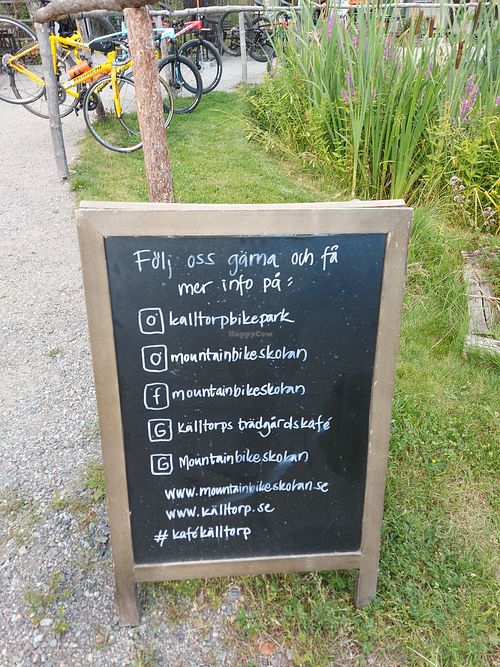 Följ oss gärna och få
mer info på:
kalltorpbikepark
HappyCow
mountainbikeskolan
f mountainbikeskolan
G Källtorps trädgårdskafé
G Mountainbikeskolan
www.mountainbikeskolan.se
www.källtorp.se
#kafékälltorp